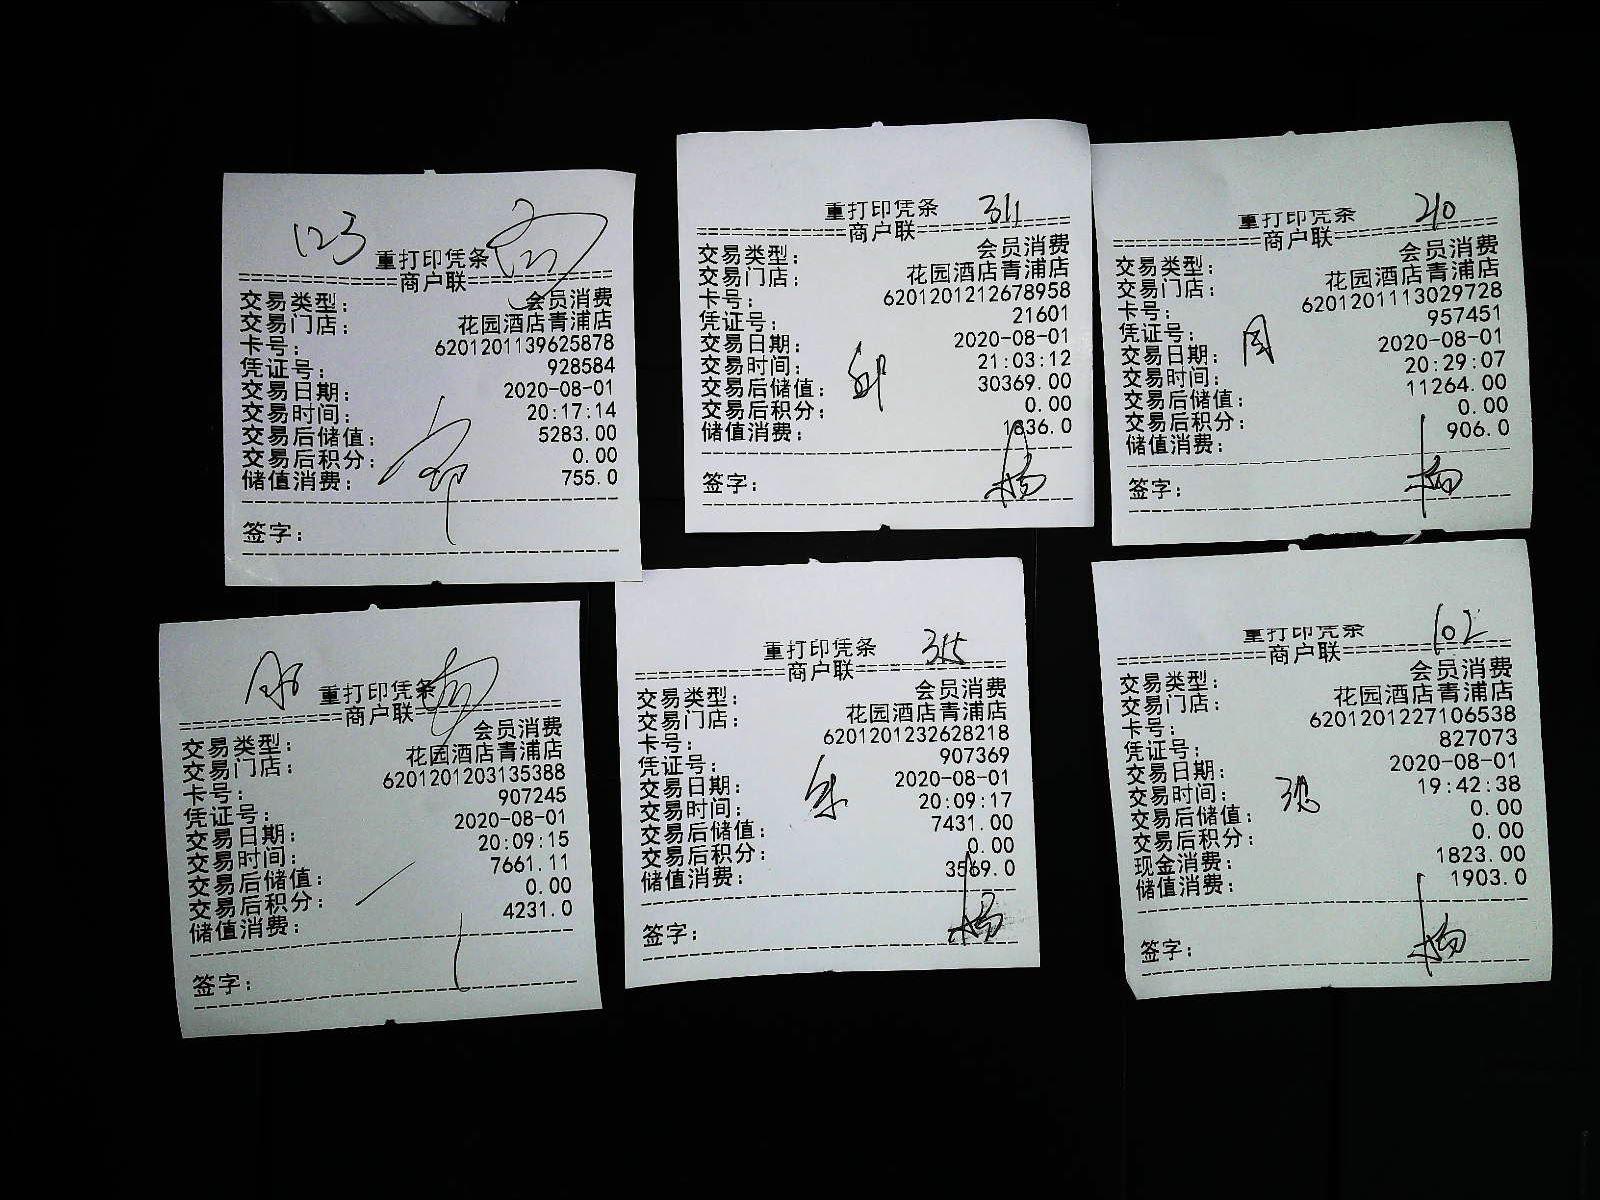 123
重打印凭条
商户联
交易类型: 会员消费
交易门店: 花园酒店青浦店
卡号: 6201201139625878
凭证号: 928584
交易日期: 2020-08-01
交易时间: 20:17:14
交易后储值: 5283.00
交易后积分: 0.00
储值消费: 755.0
签字:
重打印凭条 311
商户联
交易类型: 会员消费
交易门店: 花园酒店青浦店
卡号: 6201201212678958
凭证号: 21601
交易日期: 2020-08-01
交易时间: 21:03:12
交易后储值: 30369.00
交易后积分: 0.00
储值消费: 1836.0
签字: 杨
重打印凭条 210
商户联
交易类型: 会员消费
交易门店: 花园酒店青浦店
卡号: 6201201113029728
凭证号: 957451
交易日期: 2020-08-01
周
交易时间: 20:29:07
交易后储值: 11264.00
交易后积分: 0.00
储值消费: 906.0
签字: 杨
重打印凭条
商户联
交易类型: 会员消费
交易门店: 花园酒店青浦店
卡号: 6201201203135388
凭证号: 907245
交易日期: 2020-08-01
交易时间: 20:09:15
交易后储值: 7661.11
交易后积分: 0.00
储值消费: 4231.0
签字:
重打印凭条 315
商户联
交易类型: 会员消费
交易门店: 花园酒店青浦店
卡号: 6201201232628218
凭证号: 907369
交易日期: 2020-08-01
交易时间: 20:09:17
交易后储值: 7431.00
交易后积分: 0.00
储值消费: 3569.0
签字: 杨
重打印凭条 102
商户联
交易类型: 会员消费
交易门店: 花园酒店青浦店
卡号: 6201201227106538
凭证号: 827073
交易日期: 2020-08-01
交易时间: 19:42:38
交易后储值: 0.00
交易后积分: 0.00
现金消费: 1823.00
储值消费: 1903.0
签字: 杨